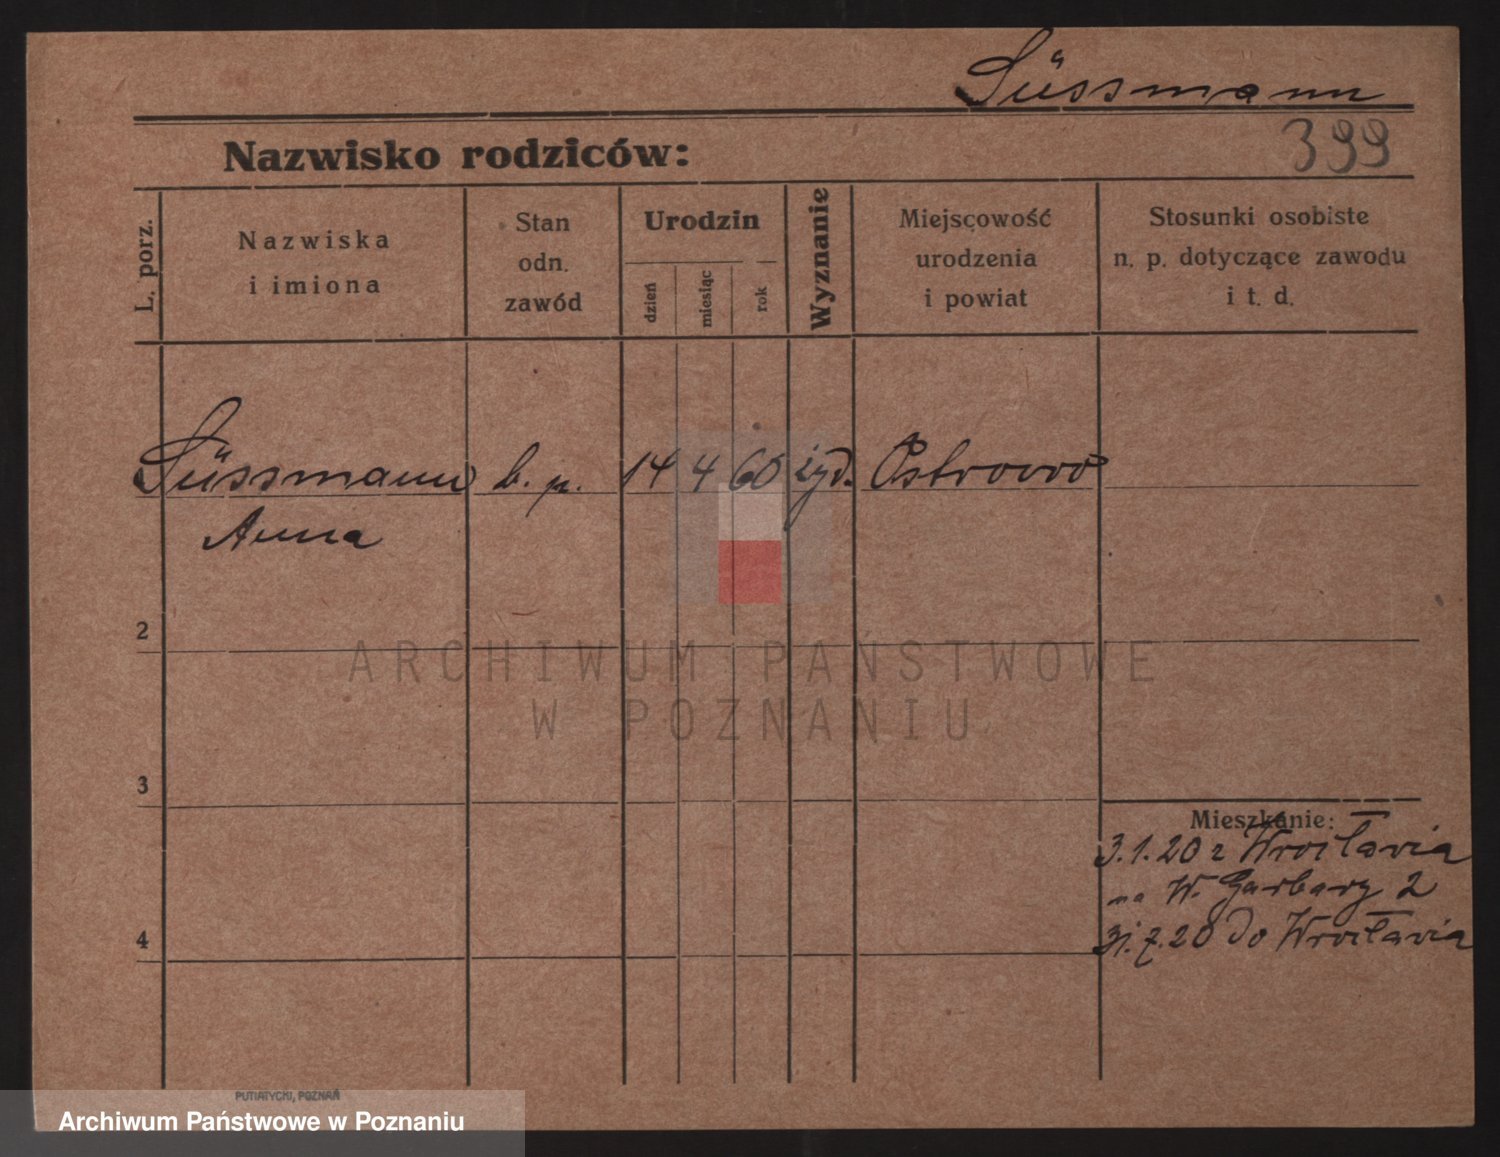 Süssmann
399
Nazwisko rodziców:
L. porz.
Nazwiska
i imiona
Stan
odn.
zawód
Urodzin
dzień
miesiąc
rok
Wyznanie
Miejscowość
urodzenia
i powiat
Stosunki osobiste
n. p. dotyczące zawodu
i t. d.
Süssmann b. p. 14 4 60 żyd. Ostrowo
Anna
2
ARCHIWUM PAŃSTWOWE
W POZNANIU
3
Mieszkanie:
3.1.20 z Wrocławia
na W. Garbary 2
4
31.7.20 do Wrocławia
PUTIATYCKI, POZNAŃ
Archiwum Państwowe w Poznaniu